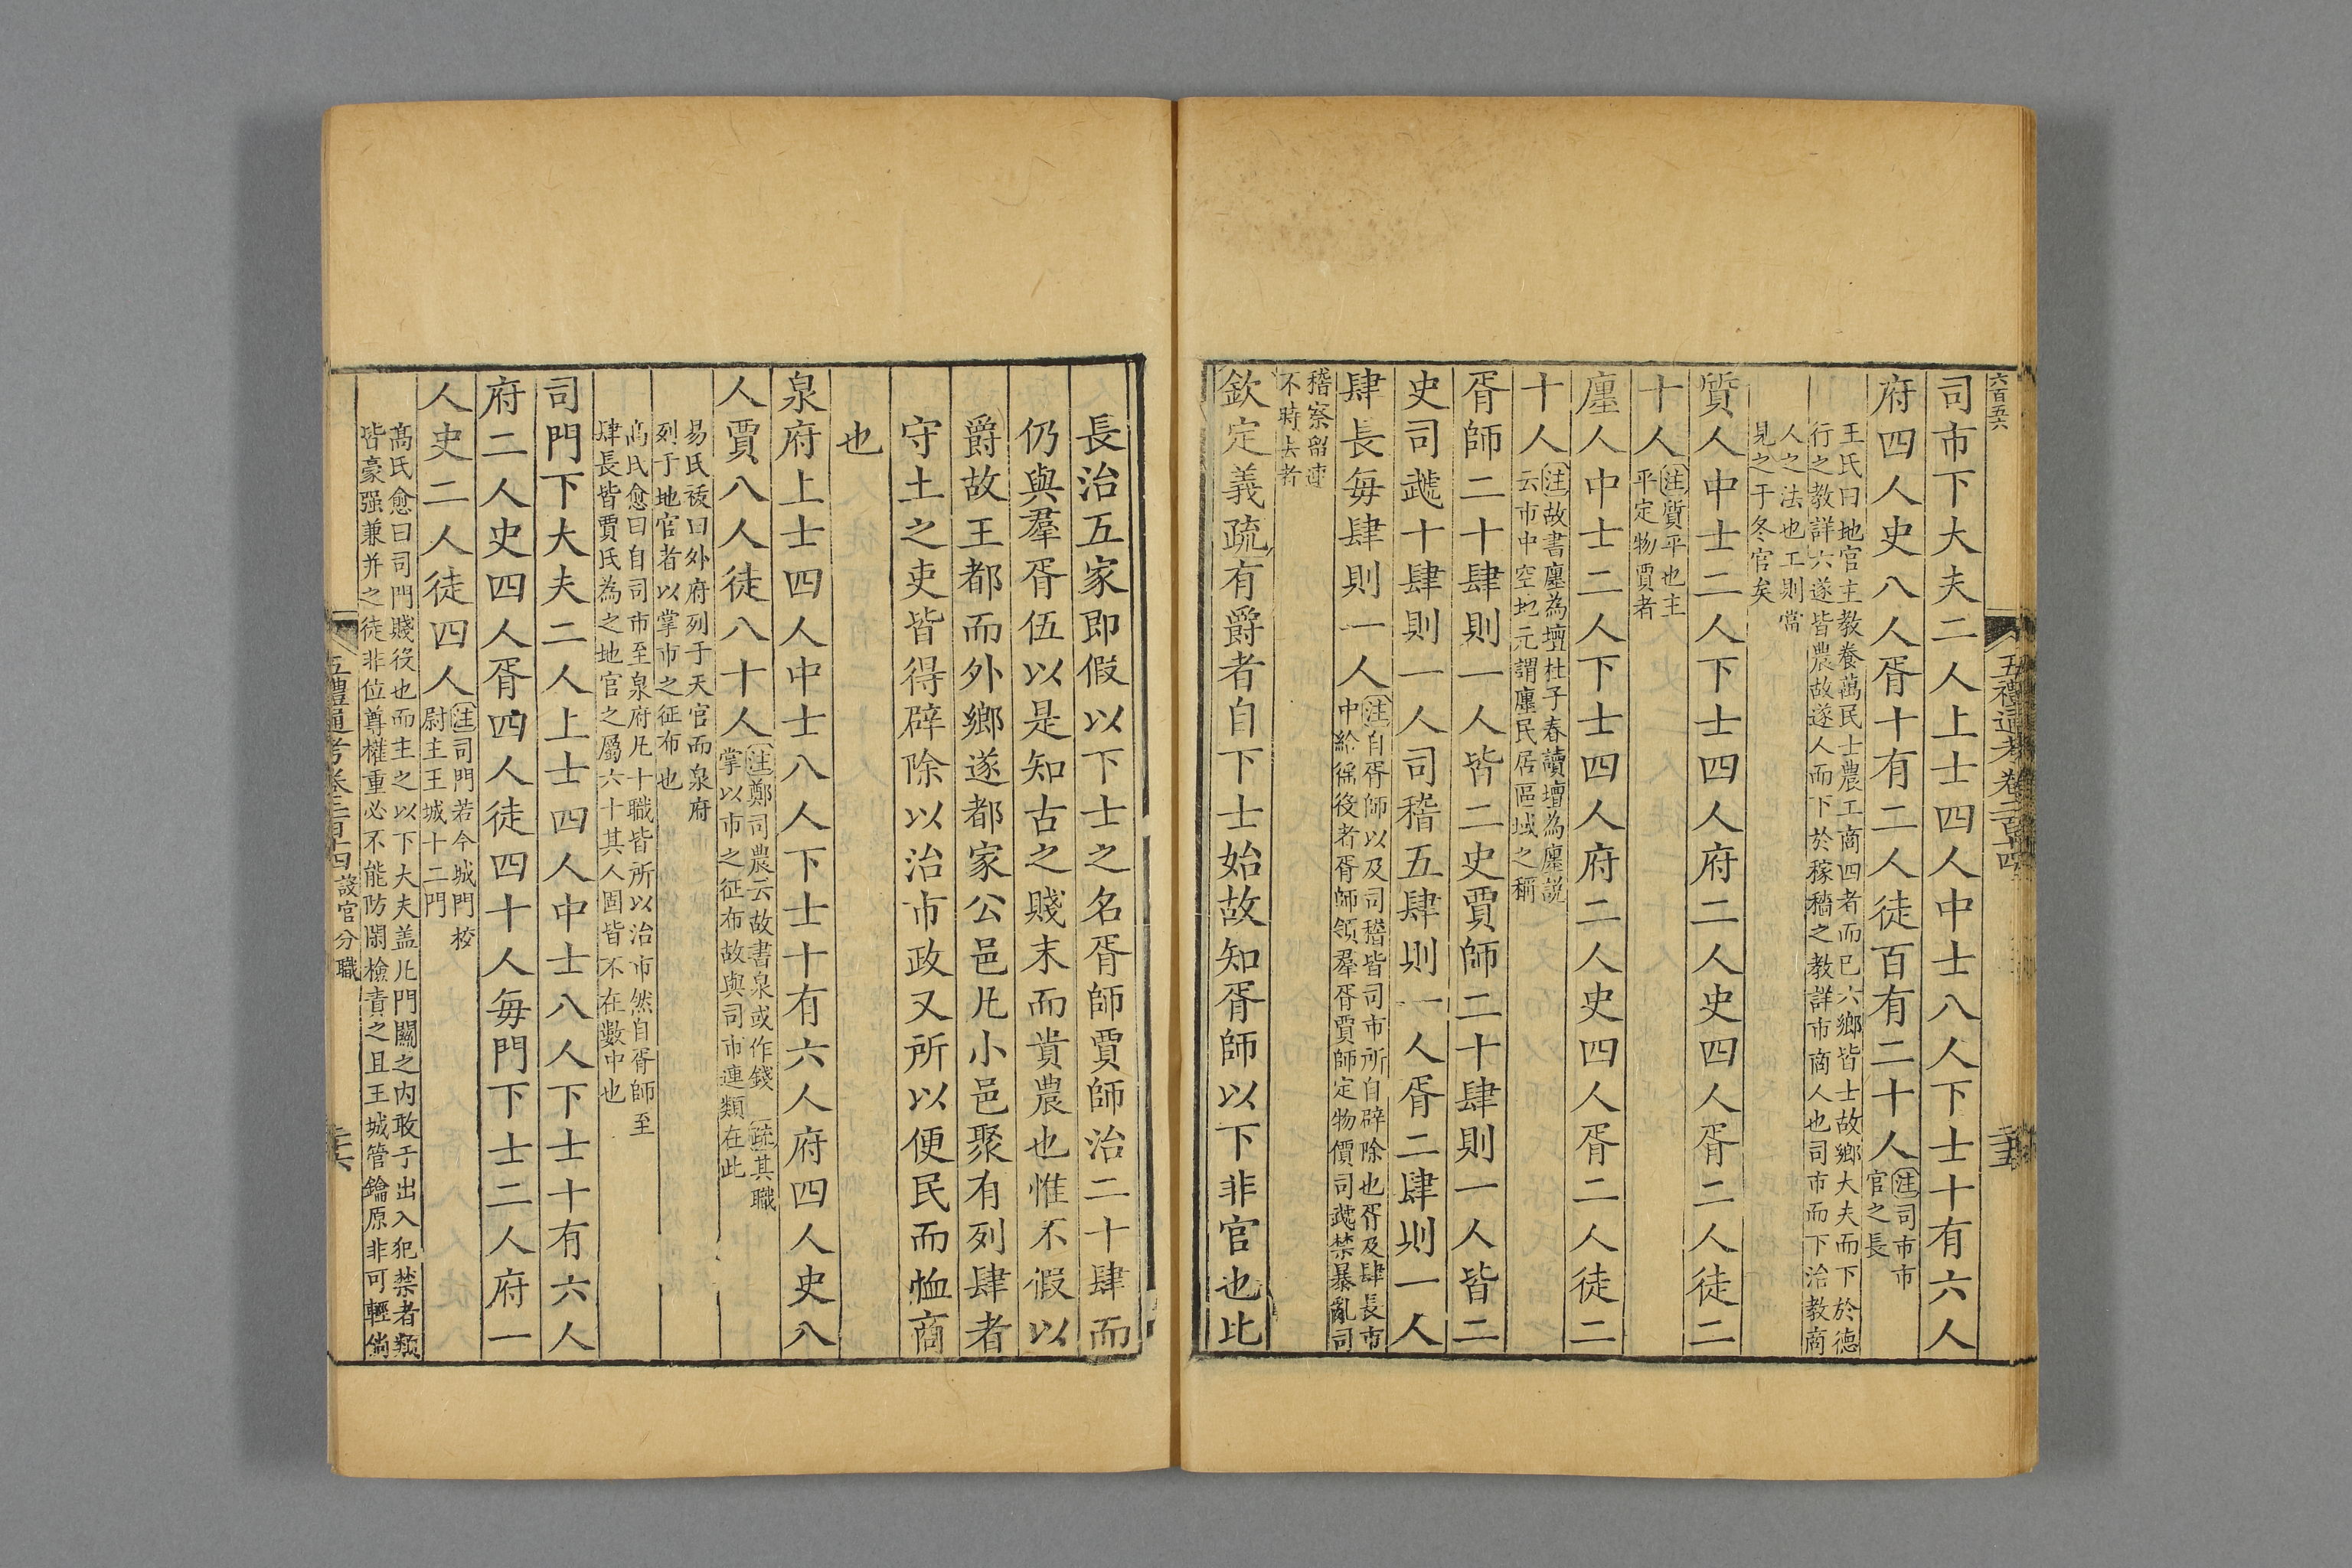 六百五六
五禮通考卷二百十四
司市下大夫二人上士四人中士八人下士十有六人
府四人史八人胥十有二人徒百有二十人
注司市市
官之長
王氏曰地官主教養萬民士農工商四者而已六鄉皆士故鄉大夫而下於德
行之教詳六遂皆農故遂人而下於稼穡之教詳市商人也司市而下治教商
人之法也工則當
見之于冬官矣
質人中士二人下士四人府二人史四人胥二人徒二
十人
注質平也主
平定物賈者
廛人中士二人下士四人府二人史四人胥二人徒二
十人
注故書廛為壇杜子春讀壇為廛説
云市中空地元謂廛民居區域之稱
胥師二十肆則一人皆二史賈師二十肆則一人皆二
史司虣十肆則一人司稽五肆則一人胥二肆則一人
肆長每肆則一人
注自胥師以及司稽皆司市所自辟除也胥及肆長市
中給徭役者胥師領羣胥賈師定物價司虣禁暴亂司
稽察留連
不時去者
欽定義疏有爵者自下士始故知胥師以下非官也此
長治五家即假以下士之名胥師賈師治二十肆而
仍與羣胥伍以是知古之賤末而貴農也惟不假以
爵故王都而外鄉遂都家公邑凡小邑聚有列肆者
守土之吏皆得辟除以治市政又所以便民而恤商
也
泉府上士四人中士八人下士十有六人府四人史八
人賈八人徒八十人
注鄭司農云故書泉或作錢 疏其職
掌以市之征布故與司市連類在此
易氏祓曰外府列于天官而泉府
列于地官者以掌市之征布也
高氏愈曰自司市至泉府凡十職皆所以治市然自胥師至
肆長皆賈氏為之地官之屬六十其人固皆不在數中也
司門下大夫二人上士四人中士八人下士十有六人
府二人史四人胥四人徒四十人每門下士二人府一
人史二人徒四人
注司門若今城門校
尉主王城十二門
高氏愈曰司門賤役也而主之以下大夫盖凡門關之內敢于出入犯禁者類
皆豪强兼并之徒非位尊權重必不能防閑檢責之且王城管鑰原非可輕倘
五禮通考卷二百十四 設官分職